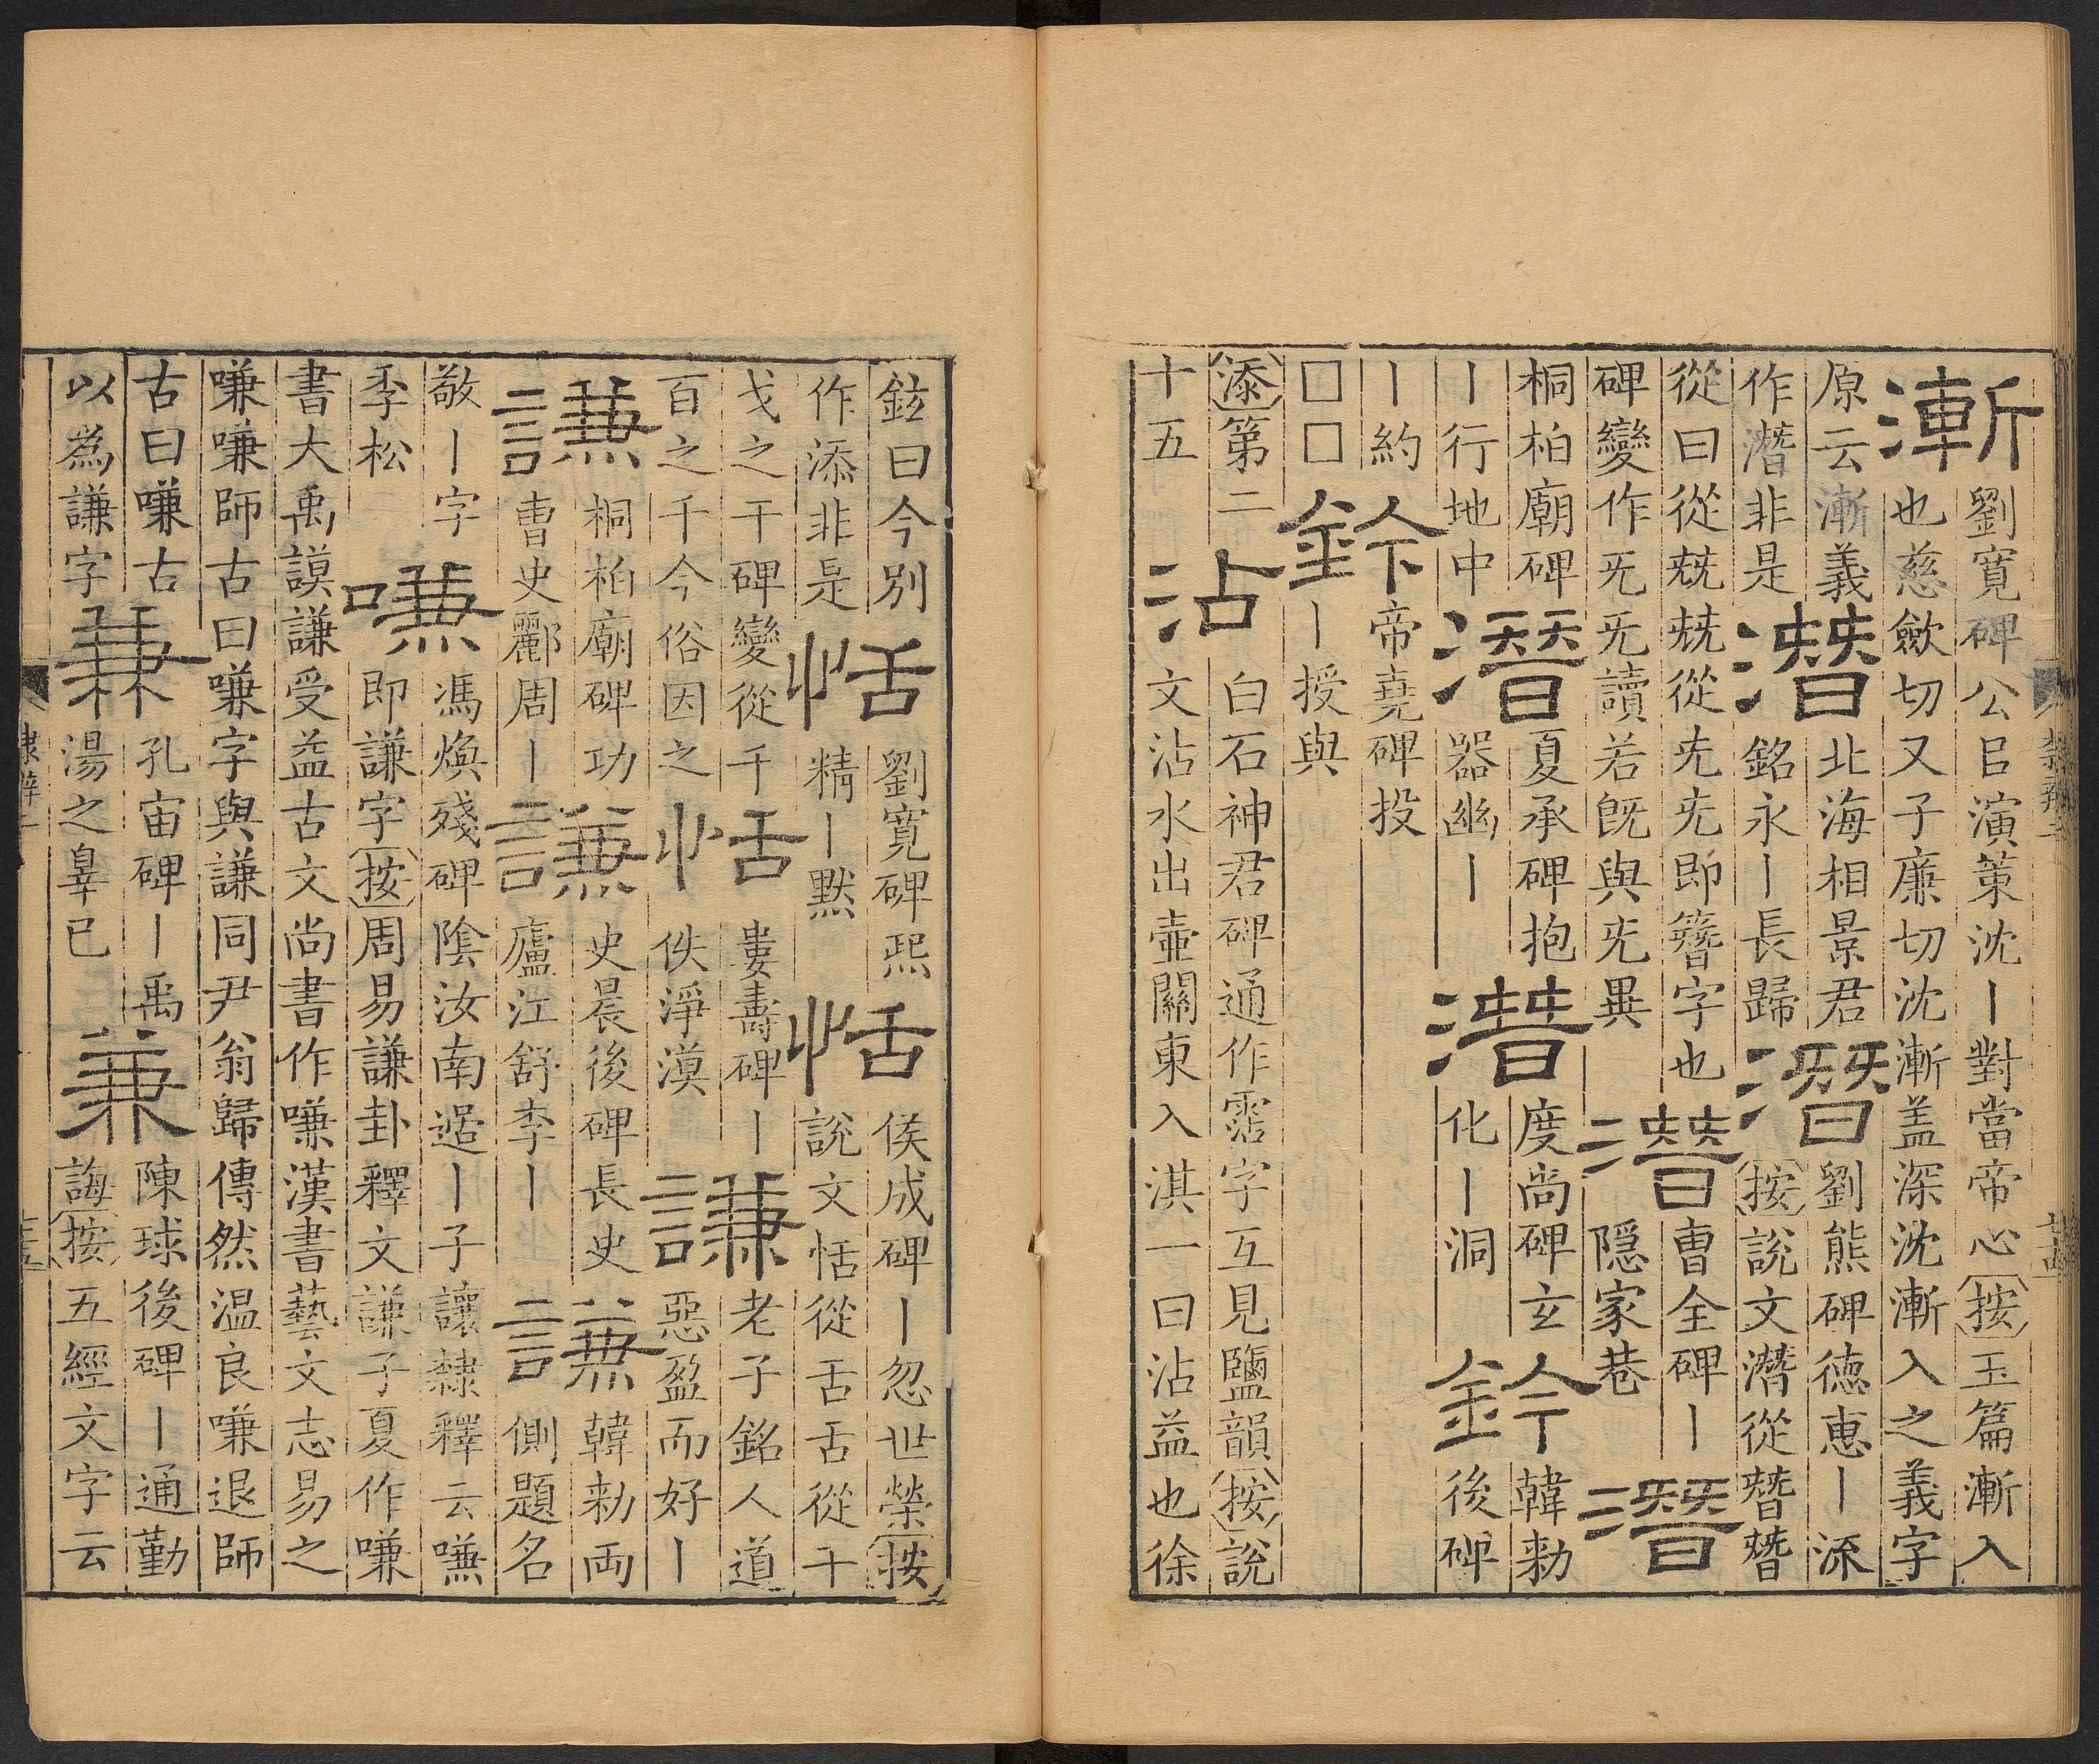 漸
劉寬碑公㠯演策沈丨對當帝心按玉篇漸入
也慈歛切又子廉切沈漸盖深沈漸入之義字
原云漸義
作潛非是
潛
北海相景君
銘永丨長歸
潛
劉熊碑德惠丨㴱
按說文潛從朁朁
從曰從兓兓從兂兂即簪字也
碑變作旡旡讀若旣與兂異
潛
曹全碑丨
隱家巷
潛
桐柏廟碑
丨行地中
潛
夏承碑抱
器幽丨
潛
度尚碑玄
化丨洞
鈐
韓勑
後碑
丨約
□□
鈐
帝堯碑投
丨授與
添第二
十五
沾
白石神君碑通作霑字互見鹽韻按說
文沾水出壷關東入淇一曰沾益也徐
鉉曰今別
作添非是
恬
劉寬碑熙
精丨黙
恬
侯成碑丨忽世榮按
說文恬從舌舌從干
戈之干碑變從千
百之千今俗因之
恬
婁壽碑丨
佚淨漠
謙
老子銘人道
惡盈而好丨
謙
桐柏廟碑功
曹史酈周丨
謙
史晨後碑長史
廬江舒李丨
謙
韓勑両
側題名
敬丨字
季松
嗛
馮煥殘碑陰汝南丨子讓隸釋云嗛
即謙字按周易謙卦釋文謙子夏作嗛
書大禹謨謙受益古文尚書作嗛漢書藝文志易之
嗛嗛師古曰嗛字與謙同尹翁歸傳然温良嗛退師
古曰嗛古
以為謙字
兼
孔宙碑丨禹
湯之辠已
兼
陳球後碑丨通勤
誨按五經文字云